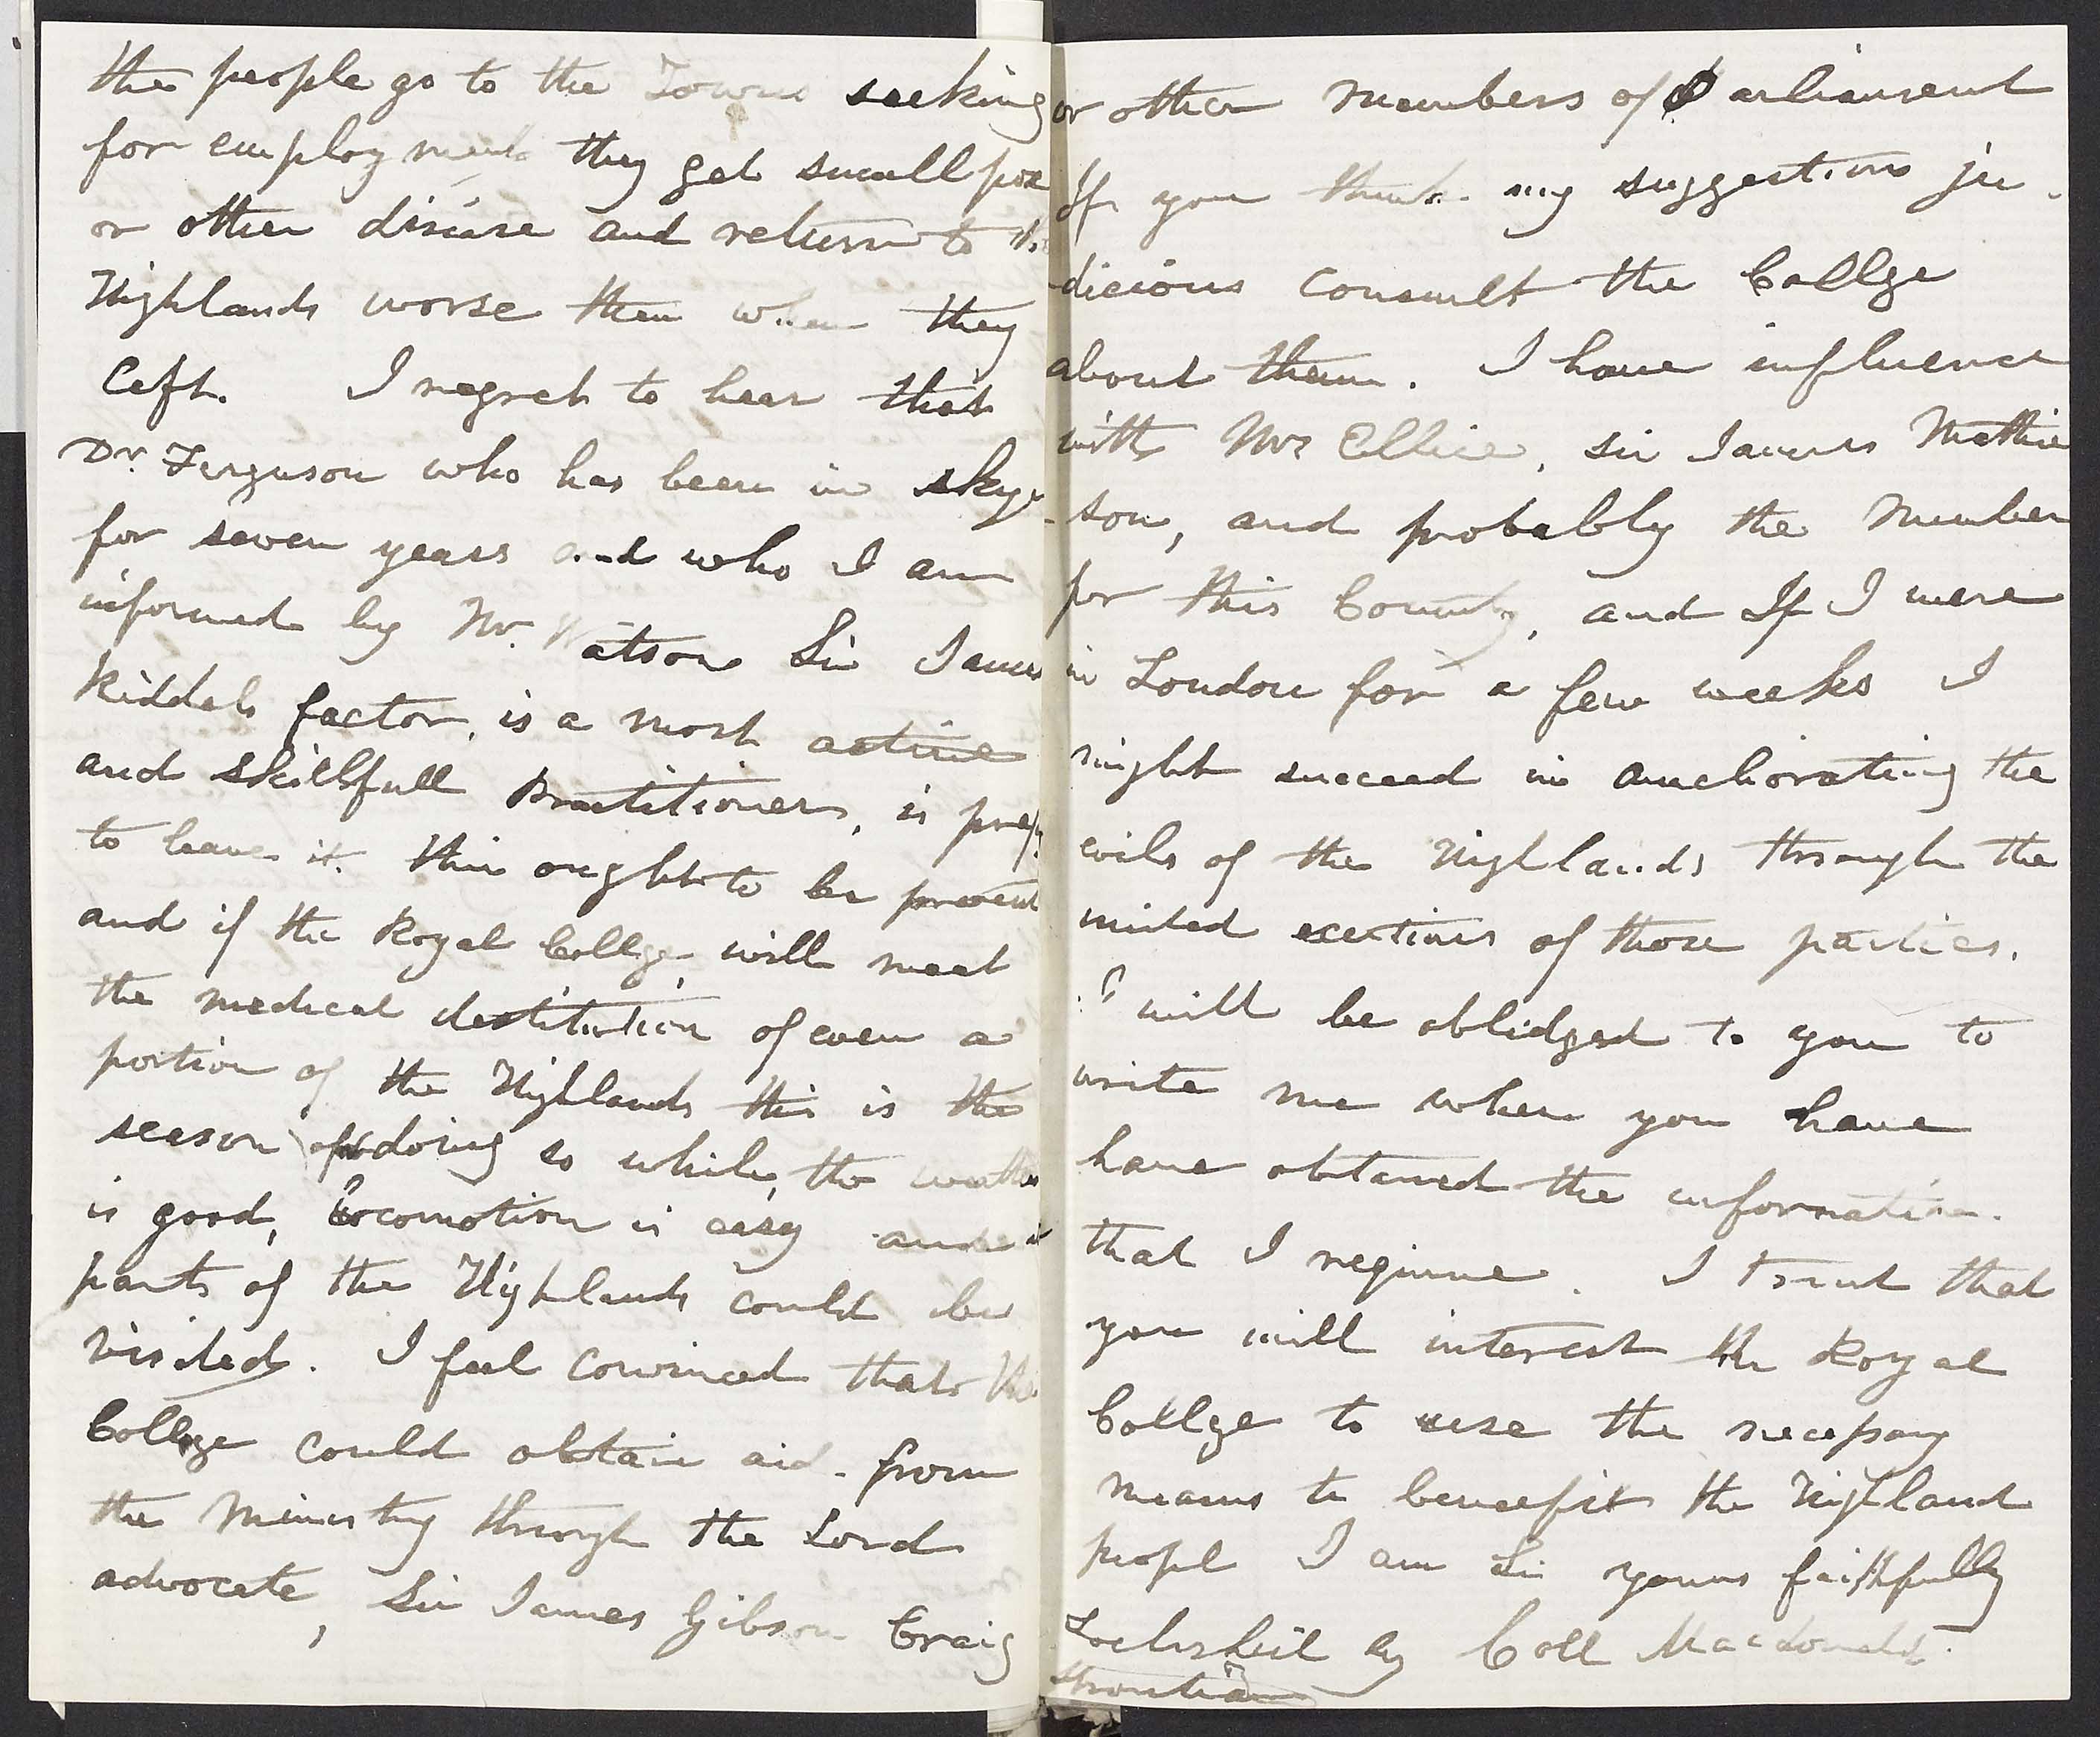 the people go to the Towns seeking
for employment they get small pox
or other disease and return to the
Highlands worse then when they
left. I regret to hear that
Dr. Ferguson who has been in Skye
for seven years and who I am
informed by Mr. Watson Sir James
Riddels factor, is a most active
and skillfull Practitioner, is prepg
to leave it. this ought to be prevent
and if the Royal Collge will meet
the medical destitution of even a
portion of the Highlands this is the
season of doing so while, the weather
is good, Locomotion is easy and
parts of the Highlands could be
visited. I feel convinced that the
College could obtain aid from
the Ministry through the Lord
advocate, Sir James Gibson Craig
or other Members of Parliament
If you think my suggestions ju-
dicious consult the Collge
about them. I have influence
with Mr Ellice, Sir James Mathie
-son, and probably the Member
for this County, and If I were
in London for a few weeks I
might succeed in ameliorating the
evils of the Highlands through the
united exertions of those parties.
I will be oblidged to you to
write me when you have
have obtaned the information
that I requiue. I trust that
you will interest the Royal
Collge to use the necessary
means to benefit the Highland
peopl I am Sir yours faithfully
Lochshiel by Coll Macdonald.
Strontian